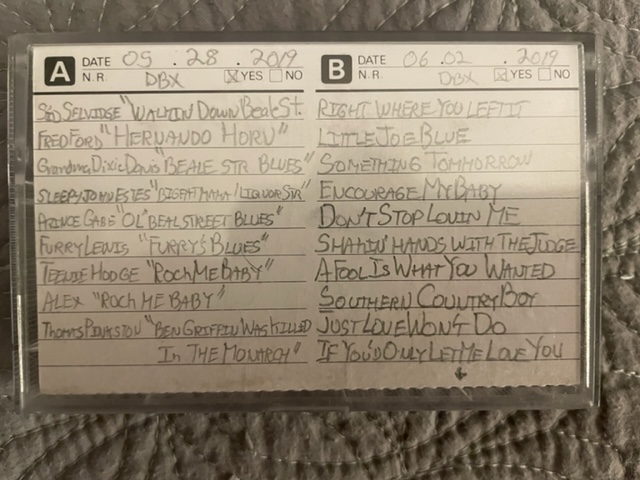 A DATE 05 . 28 . 2019
N.R. DBX ☒YES ☐NO
Sid Selvidge "Walkin Down Beale St.
Fred Ford "Hernando Horn"
Grandma Dixie Davis "Beale Str Blues"
Sleepy John Estes "Big Fat Mama / Liquor Str"
Prince Gabe "Ol' Beal Street Blues"
Furry Lewis "Furry's Blues"
Teenie Hodge "Rock Me Baby"
Alex "Rock Me Baby"
Thomas Pinkston "Ben Griffin Was Killed
In The Monarch"
B DATE 06 . 02 . 2019
N.R. DBX ☒YES ☐NO
Right Where You Left It
Little Joe Blue
Something Tommorrow
Encourage My Baby
Don't Stop Lovin Me
Shakin' Hands With The Judge
A Fool Is What You Wanted
Southern Country Boy
Just Love Won't Do
If You'd Only Let Me Love You